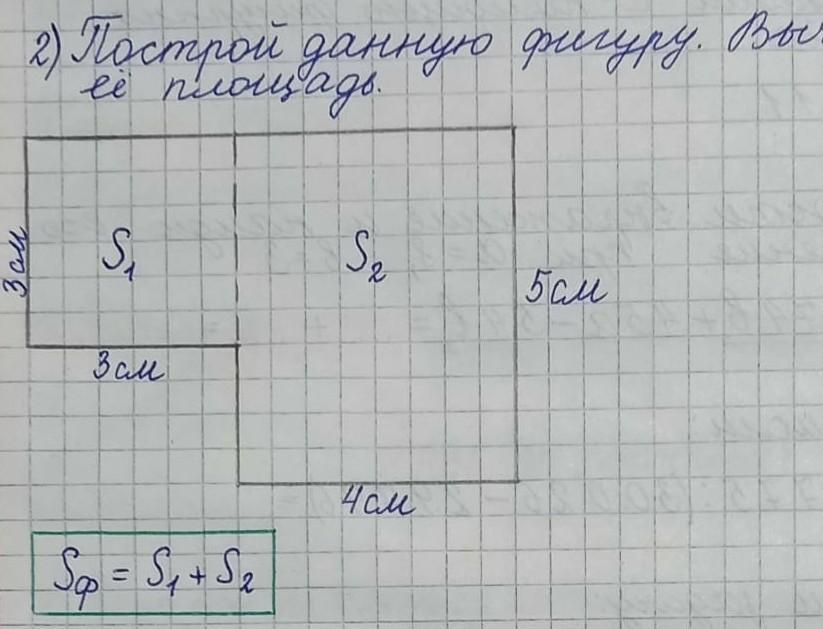 2) Построй данную фигуру.
её площадь.
S₁
S₂
3см
5см
3см
4см
Sф = S₁ + S₂